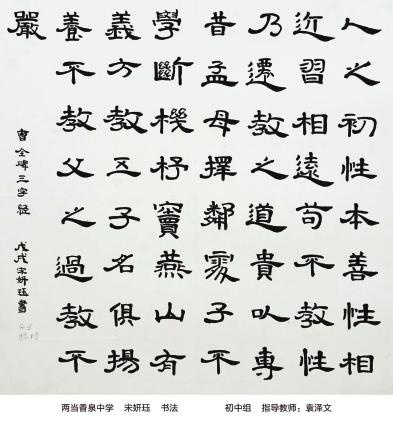 人之初性本善性相
近習相遠苟不教性
乃遷教之道貴以專
昔孟母擇鄰處子不
學斷機杼竇燕山有
義方教五子名俱揚
養不教父之過教不
嚴
曹全碑三字經 戊戌宋妍珏書
两当香泉中学 宋妍珏 书法 初中组 指导教师：袁泽文